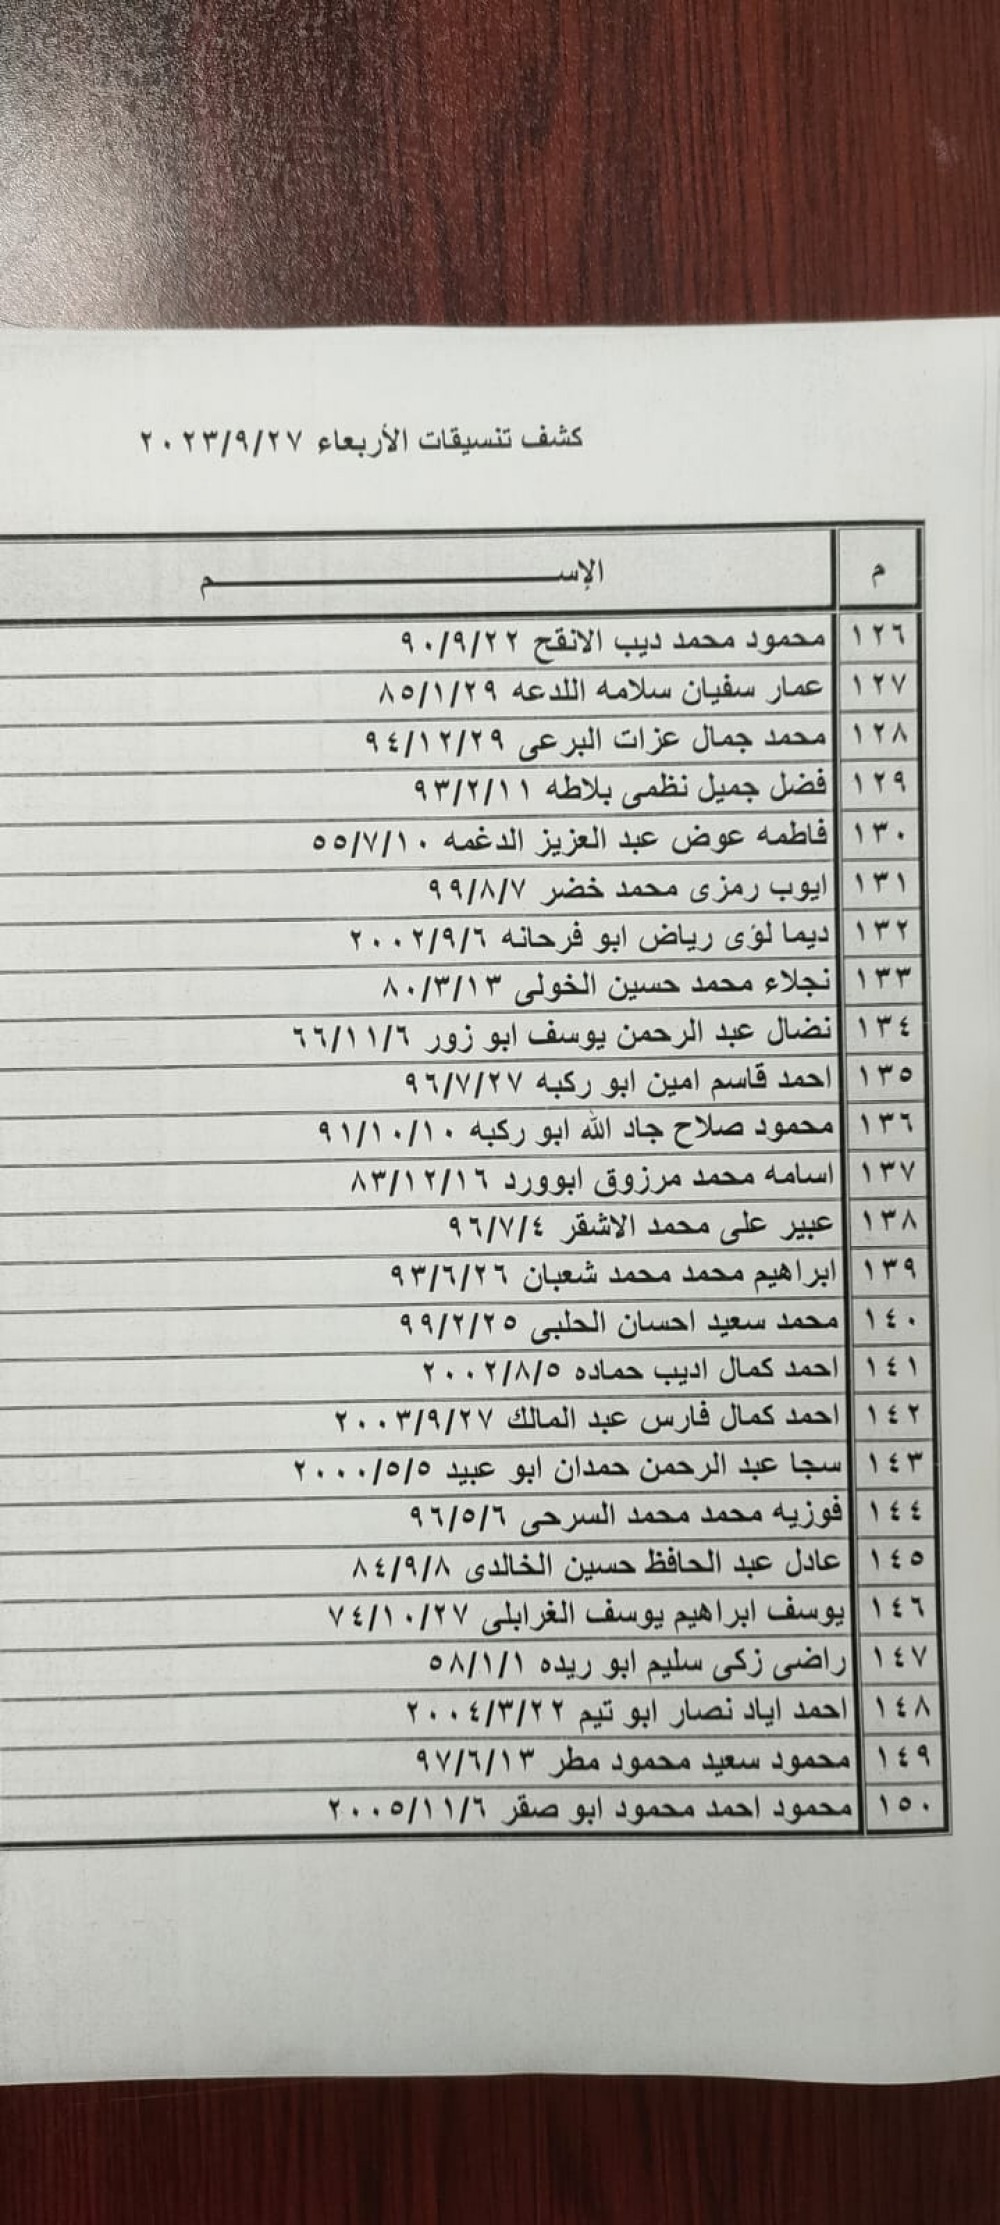 كشف تنسيقات الأربعاء ٢٠٢٣/٩/٢٧
م الإســــــــم
١٢٦ محمود محمد ديب الانقح ٩٠/٩/٢٢
١٢٧ عمار سفيان سلامه اللدعه ٨٥/١/٢٩
١٢٨ محمد جمال عزات البرعى ٩٤/١٢/٢٩
١٢٩ فضل جميل نظمى بلاطه ٩٣/٢/١١
١٣٠ فاطمه عوض عبد العزيز الدغمه ٥٥/٧/١٠
١٣١ ايوب رمزى محمد خضر ٩٩/٨/٧
١٣٢ ديما لؤى رياض ابو فرحانه ٢٠٠٢/٩/٦
١٣٣ نجلاء محمد حسين الخولى ٨٠/٣/١٣
١٣٤ نضال عبد الرحمن يوسف ابو زور ٦٦/١١/٦
١٣٥ احمد قاسم امين ابو ركبه ٩٦/٧/٢٧
١٣٦ محمود صلاح جاد الله ابو ركبه ٩١/١٠/١٠
١٣٧ اسامه محمد مرزوق ابوورد ٨٣/١٢/١٦
١٣٨ عبير على محمد الاشقر ٩٦/٧/٤
١٣٩ ابراهيم محمد محمد شعبان ٩٣/٦/٢٦
١٤٠ محمد سعيد احسان الحلبى ٩٩/٢/٢٥
١٤١ احمد كمال اديب حماده ٢٠٠٢/٨/٥
١٤٢ احمد كمال فارس عبد المالك ٢٠٠٣/٩/٢٧
١٤٣ سجا عبد الرحمن حمدان ابو عبيد ٢٠٠٠/٥/٥
١٤٤ فوزيه محمد محمد السرحى ٩٦/٥/٦
١٤٥ عادل عبد الحافظ حسين الخالدى ٨٤/٩/٨
١٤٦ يوسف ابراهيم يوسف الغرابلى ٧٤/١٠/٢٧
١٤٧ راضى زكى سليم ابو ريده ٥٨/١/١
١٤٨ احمد اياد نصار ابو تيم ٢٠٠٤/٣/٢٢
١٤٩ محمود سعيد محمود مطر ٩٧/٦/١٣
١٥٠ محمود احمد محمود ابو صقر ٢٠٠٥/١١/٦